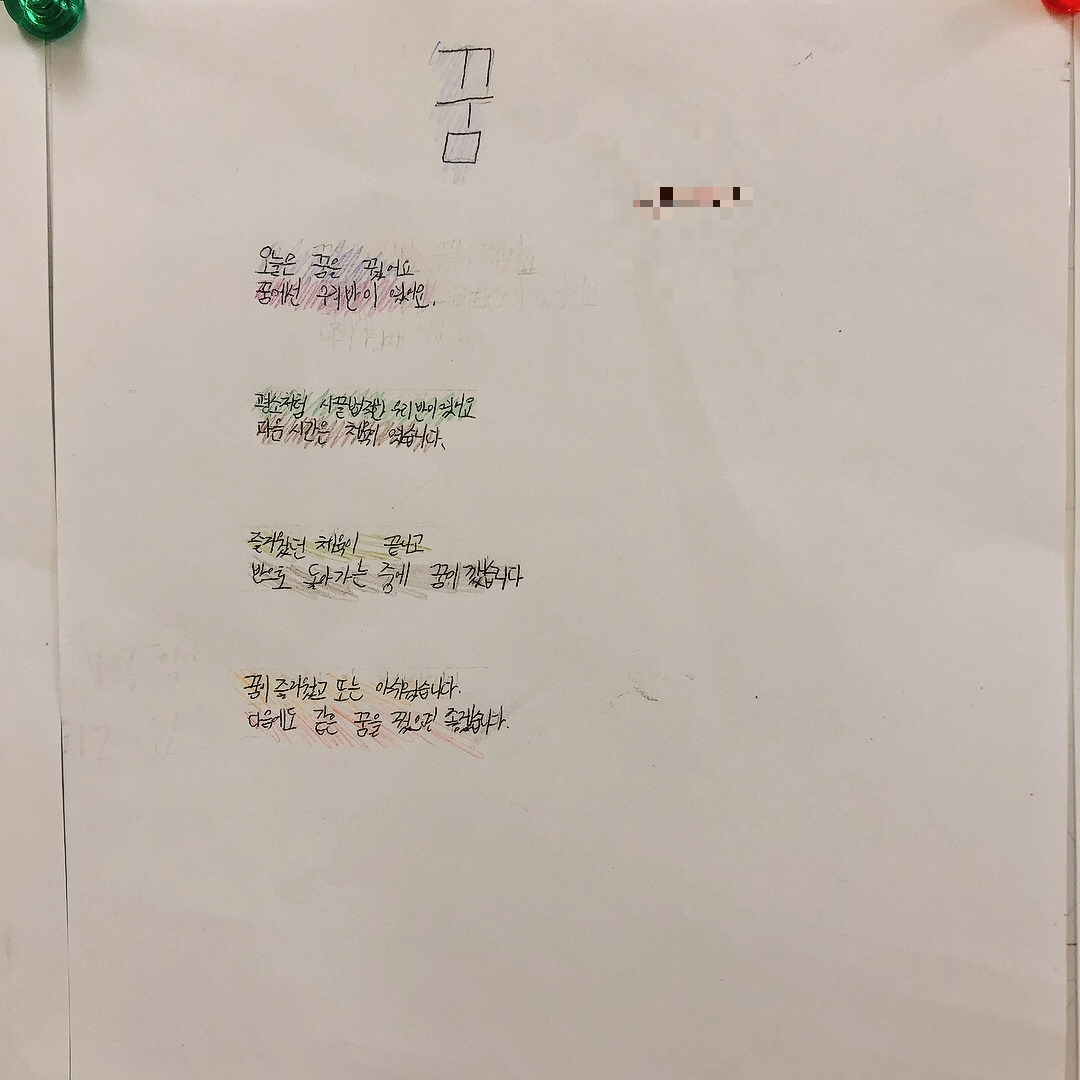 꿈
오늘은 꿈을 꿨어요
꿈에선 우리반이 였어요.
평소처럼 시끌법적한 우리반이였어요
다음 시간은 체육이 였습니다.
즐거웠던 체육이 끝나고
반으로 돌아가는 중에 꿈에 깼습니다
꿈이 즐거웠고 또는 아쉬웠습니다.
다음에도 같은 꿈을 꿨으면 좋겠습니다.